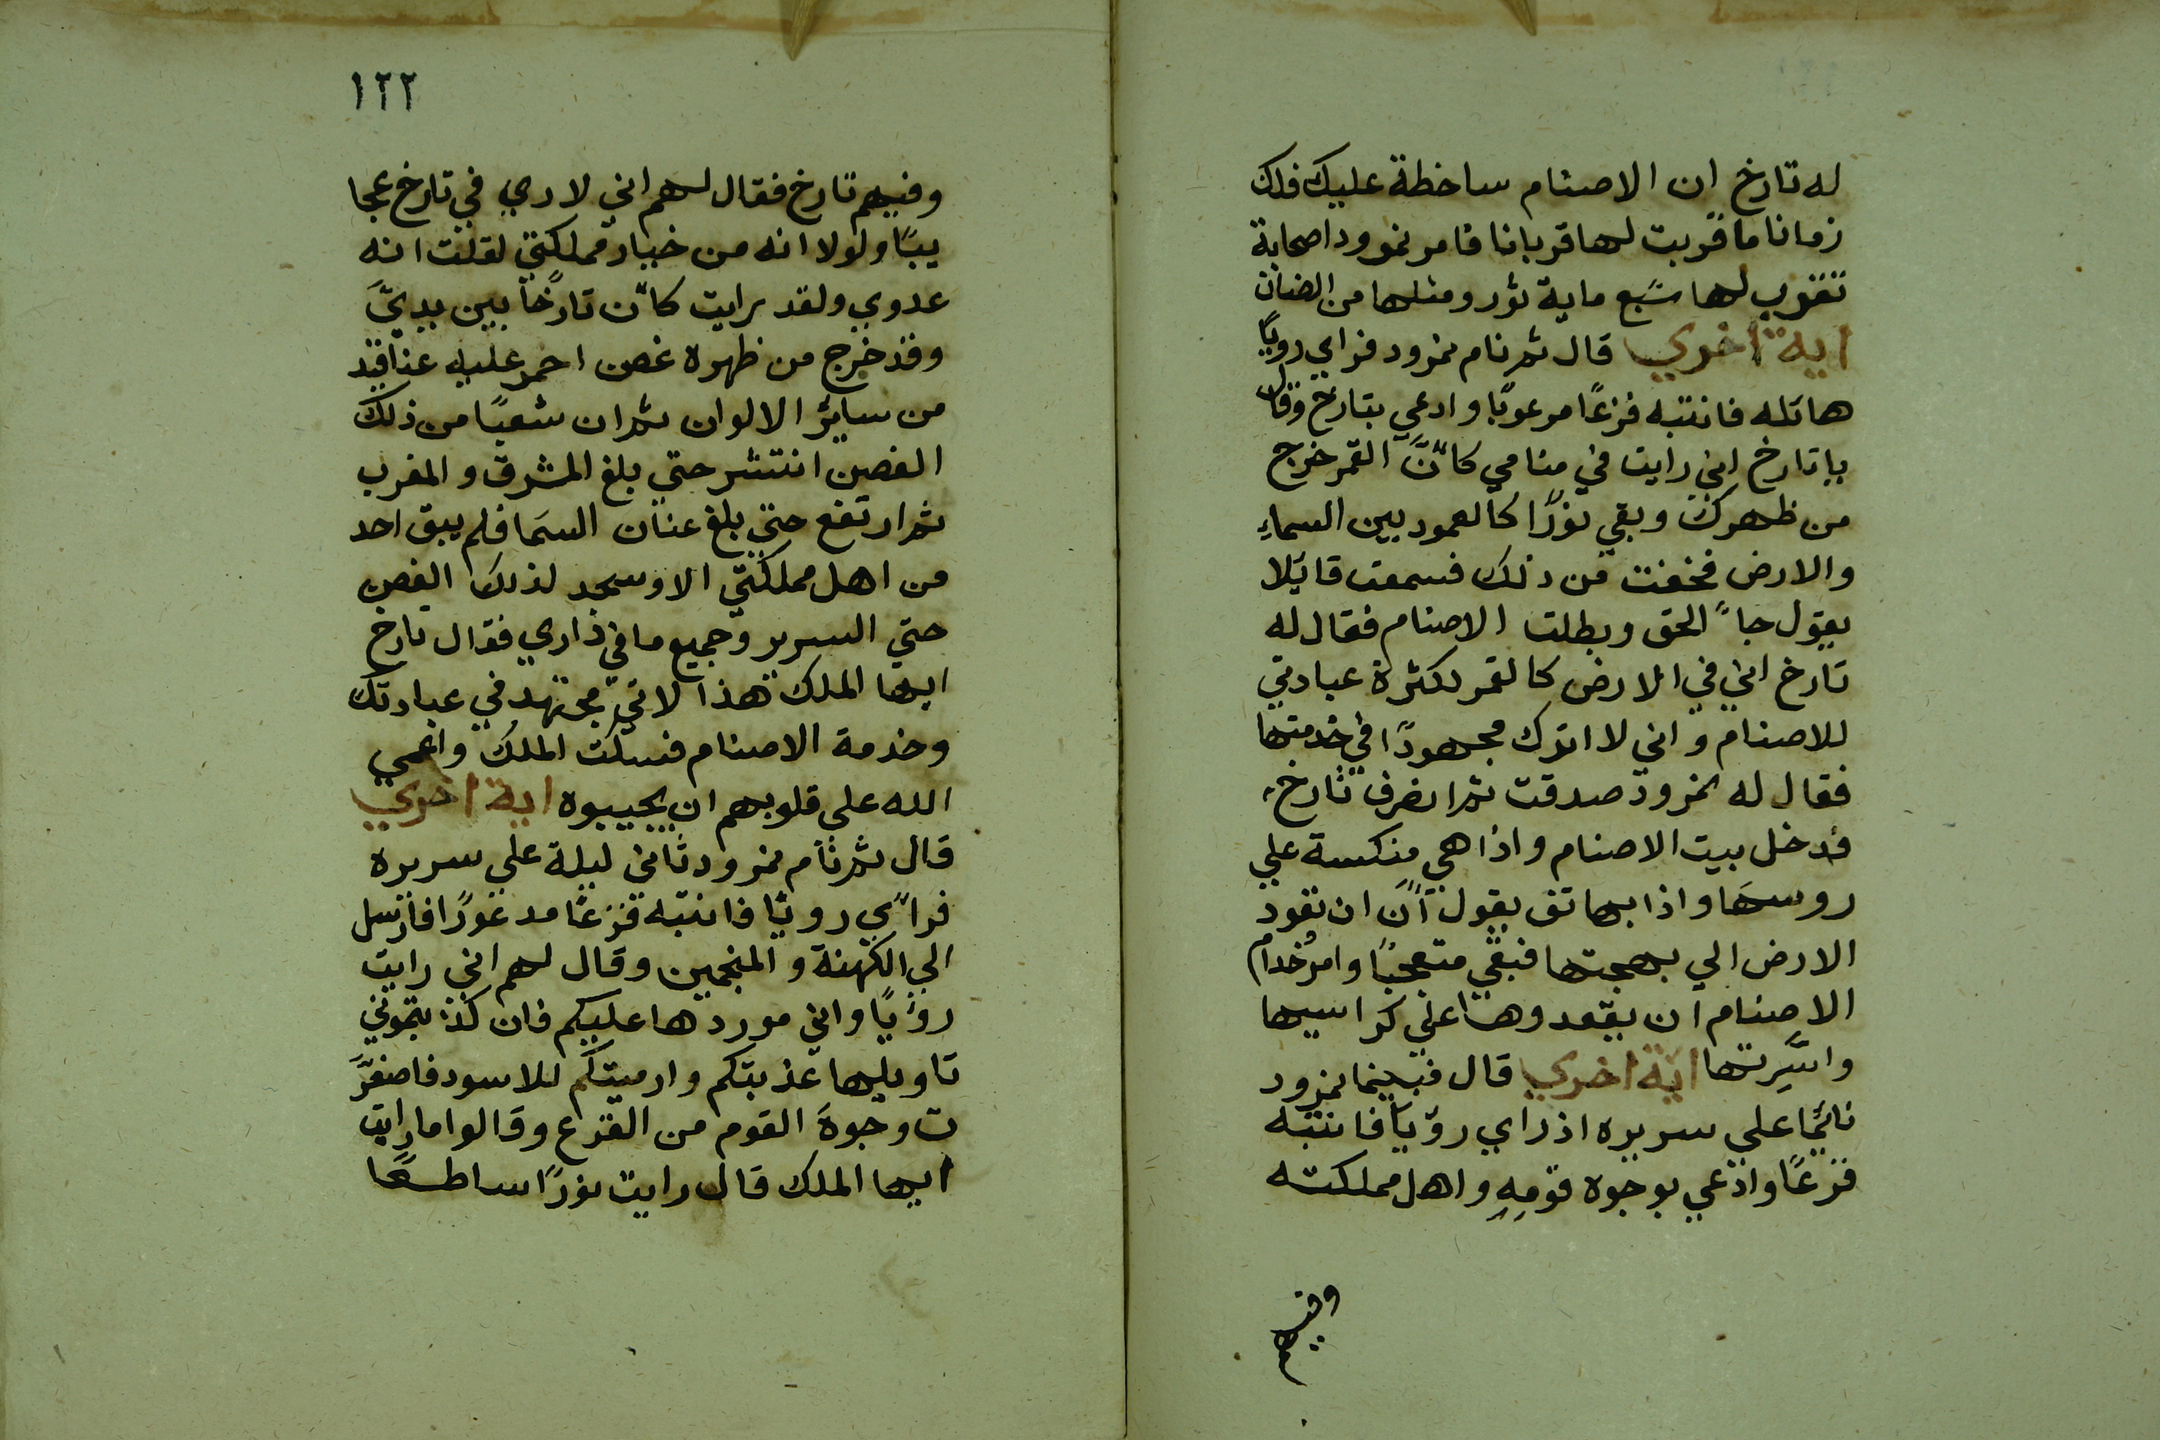 له تارخ ان الاصنام ساخطة عليك فلك
زمانا ما قربت لها قربانا فامر نمرود اصحابه
تقرب لها سَبع ماية ثور ومثلها من الضان
اية اخري قال ثم نام نمرود فراي رويًا
هائله فانتبه فزعًا مرعوبًا وادعي بتارخ وقال
يا تارخ اني رايت في منامي كانَّ القمر خرج
من ظهرك وبقي نورًا كالعمود بين السماءِ
والارض فخفت من ذلك فسمعت قائلا
يقول جاً الحق وبطلت الاصنام فقال له
تارخ اني في الارض كالقمر لكثرة عبادتي
للاصنام واني لا اترك مجهودًا في خدمتها
فقال له نمرود صدقت ثم انصرف تارخ
فدخل بيت الاصنام واذا هي منكسة علي
روسهَا واذا بهاتف يقول آنَ ان تقود
الارض الي بهجتها فبقي متعجبًا وامر خدام
الاصنام ان يقعدوها علي كراسيها
واسَّرتها اية اخري قال فبينما نمرود
نائمًا علي سريره اذ راي روًيا فانتبه
فزعًا وادعي بوجوه قومِهِ واهل مملكته
وفيهم
١٢٢
وفيهم تارخ فقال لهم اني لاري في تارخ عجا
يبًا ولولا انه من خيار مملكتي لقلت انه
عدوي ولقد رايت كانّ تارخًا بين يديَّ
وقد خرج من ظهره غصن احمر عليه عناقيد
من سايرً الالوان ثم ان شعبًا من ذلك
الغصن انتشر حتي بلغ المشرق والمغرب
ثم ارتفع حتي بلغ عنان السَما فلم يبق احد
من اهل مملكتي الا وسجد لذلك الغصن
حتي السرير وجميع ما في داري فقال تارخ
ايها الملك هذا لاني مجتهد في عبادتك
وخدمة الاصنام فسكت الملك واعمي
الله علي قلوبهم ان يجيبوه اية اخري
قال ثم نام نمرود ثاني ليلة علي سريره
فراًي رويًا فانتبه فزعًا مدعورًا فارسل
الي الكهنة والمنجمين وقال لهم اني رايت
روُيًا واني موردها عليكم فان كذبتموني
تاويلها عذبتكم وارميتكم للاسود فاصفرَّ
ت وجوهَ القوم من الفزع وقالوا ما رايت
ايها الملك قال رايت نورًا ساطعًا